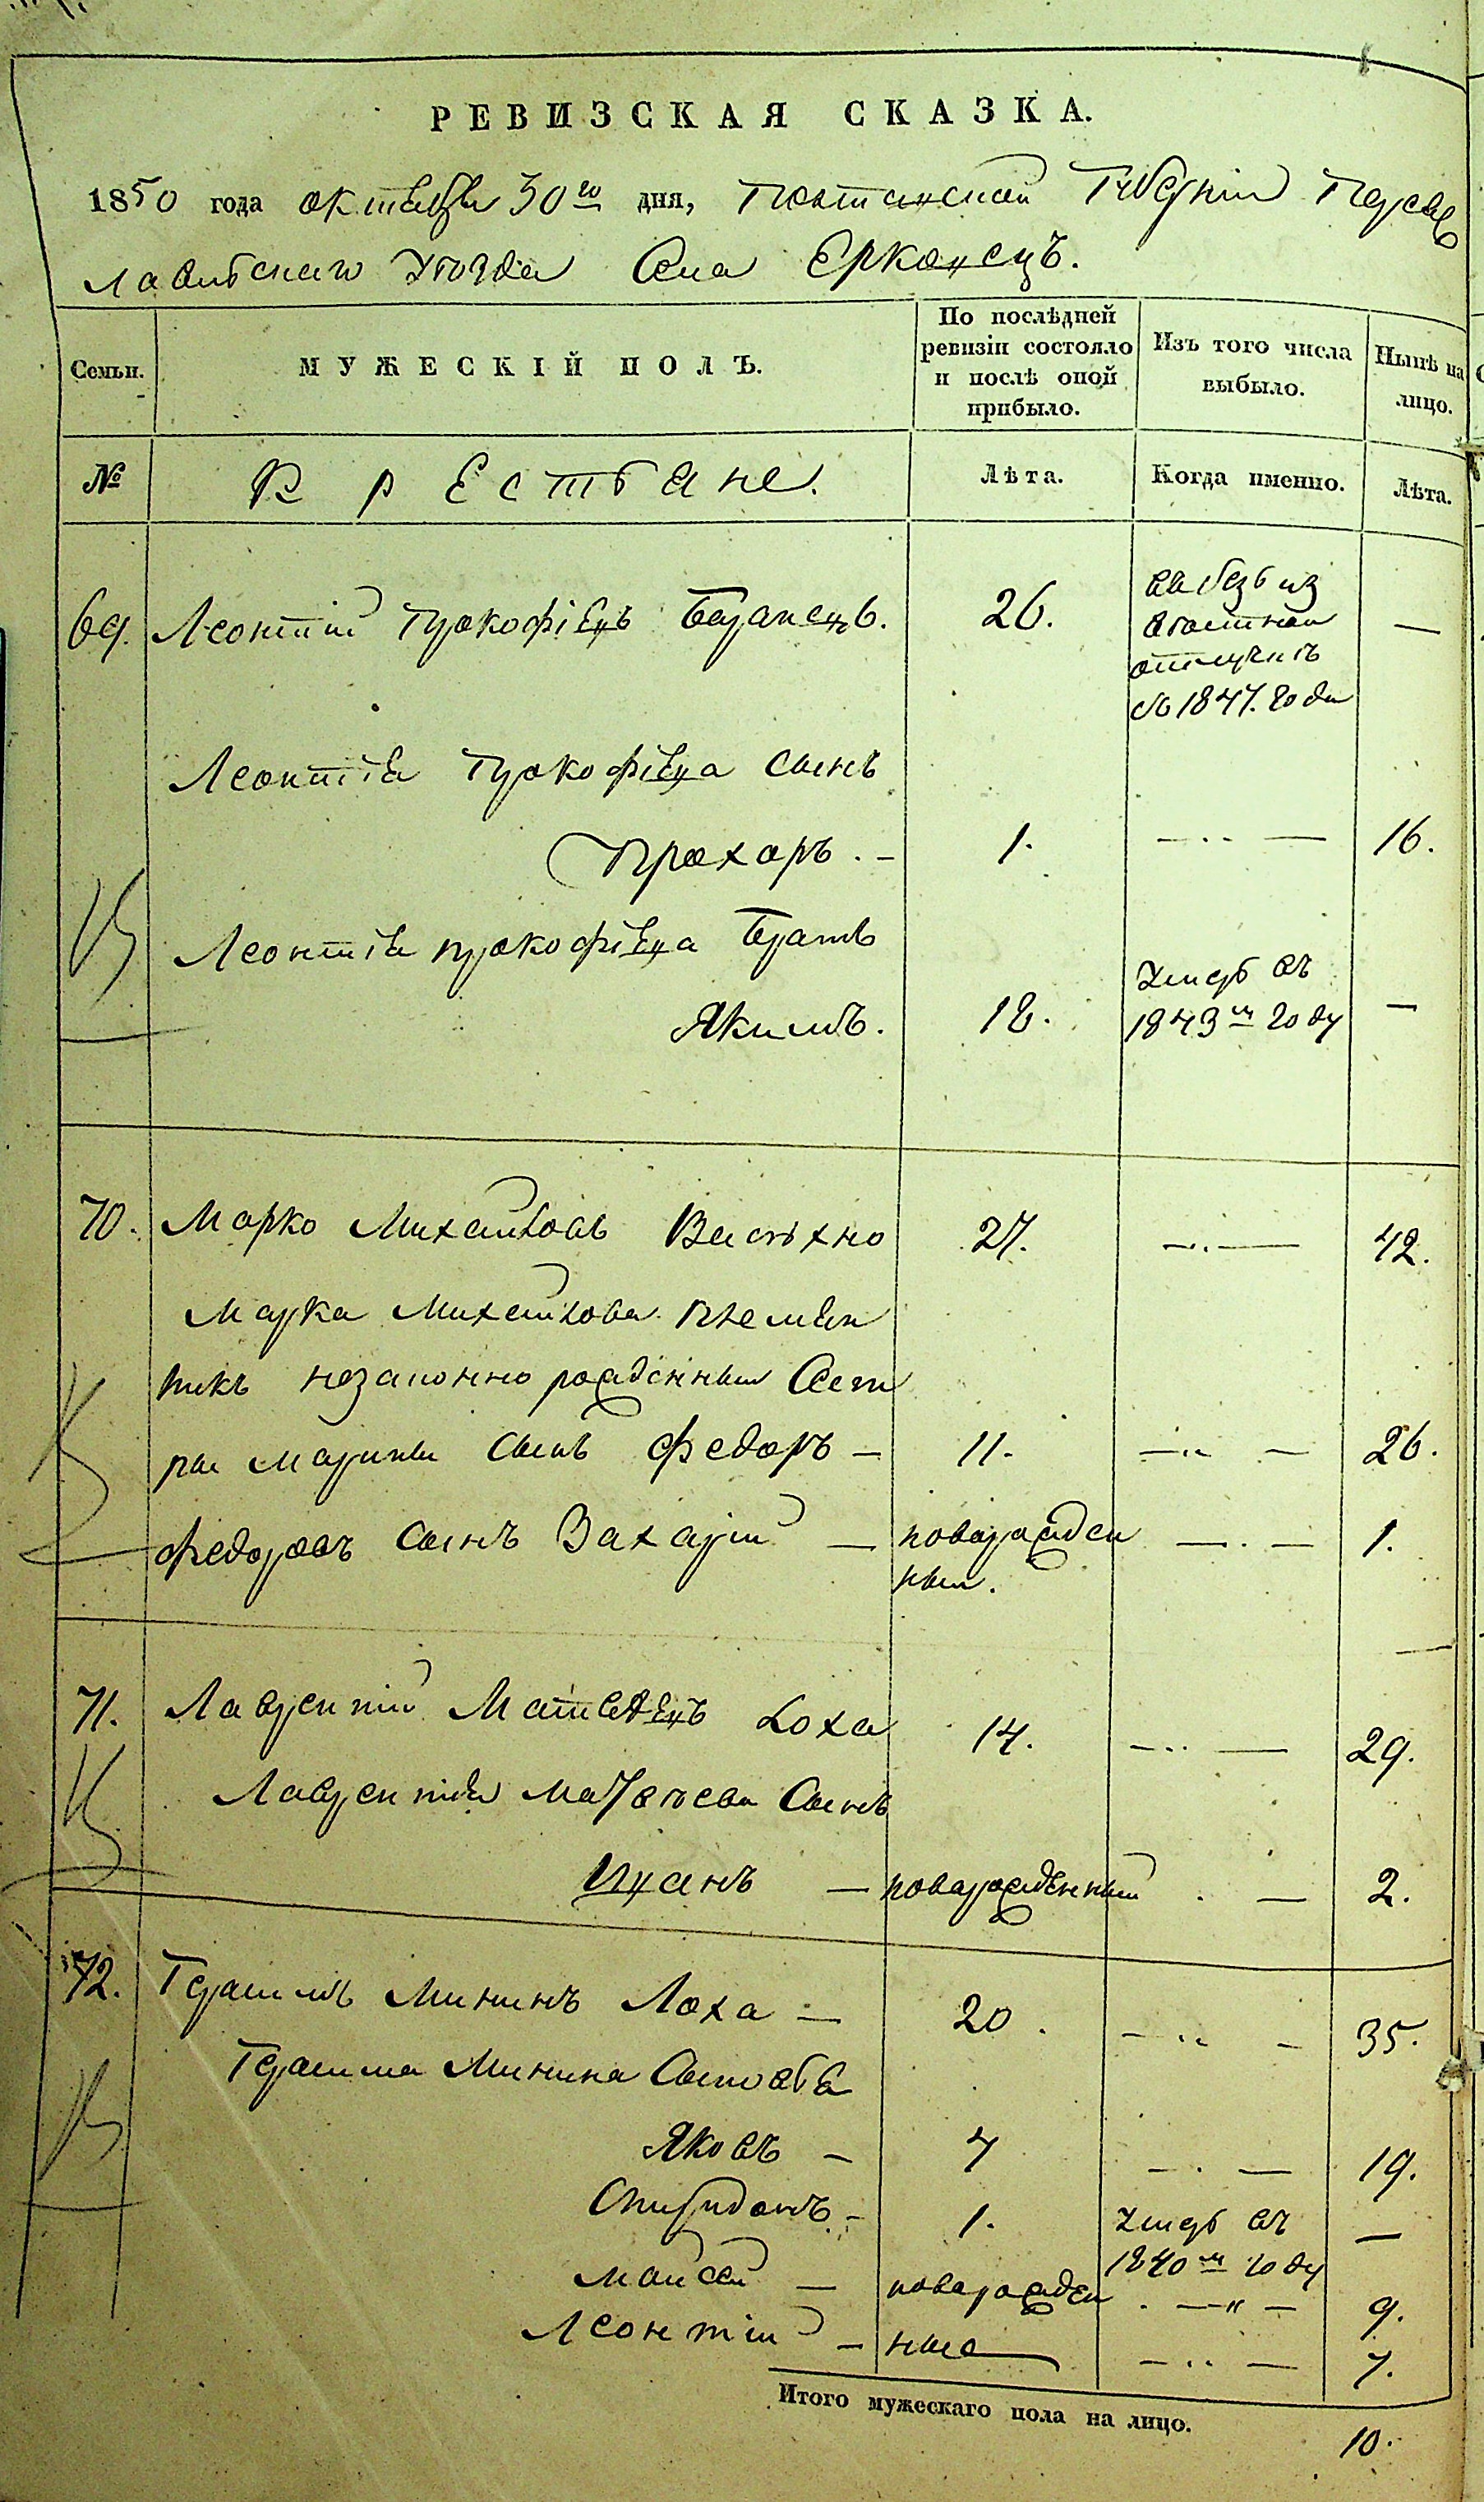 РЕВИЗСКАЯ СКАЗКА.
1850 года октября 30го дня, Полтавской Губерніи Переяс
лавскаго Уѣзда Села Ерковецъ.
Семьи.
МУЖЕСКІЙ ПОЛЪ.
По послѣдней ревизіи состояло и послѣ оной прибыло.
Изъ того числа выбыло.
Нынѣ на лицо.
№
Крестьяне.
Лѣта.
Когда именно.
Лѣта.
69. Леонтій Прокофіевъ 26. въ безъиз —
вѣстной
отлучкѣ
съ 1847. года
Леонтія Прокофіева сынъ
Прохоръ. — 1. — 16.
Леонтія прокофіева братъ
Якимъ. 18. Умеръ въ —
1843м году
70. Марко Михайловъ Васюхно 27. — 42.
Марка Михайлова племян
никъ незаконнорожденный Сест
ры марины сынъ Федоръ — 11. — 26.
Федоровъ сынъ Захарій — новорожден — 1.
ный.
71. Лаврентій Матвѣевъ Лоха 14. — 29.
Лаврентія Матвѣева Сынъ
Иванъ — новорожденный — 2.
72. Герасимъ Мининъ Лоха — 20. — 35.
Герасима Минина Сыновья
Яковъ — 4 — 19.
Спиридонъ — 1. Умеръ въ —
1840м году
Мойсей — новорожден — 9.
Леонтій — ные — 7.
Итого мужескаго пола на лицо. 10.